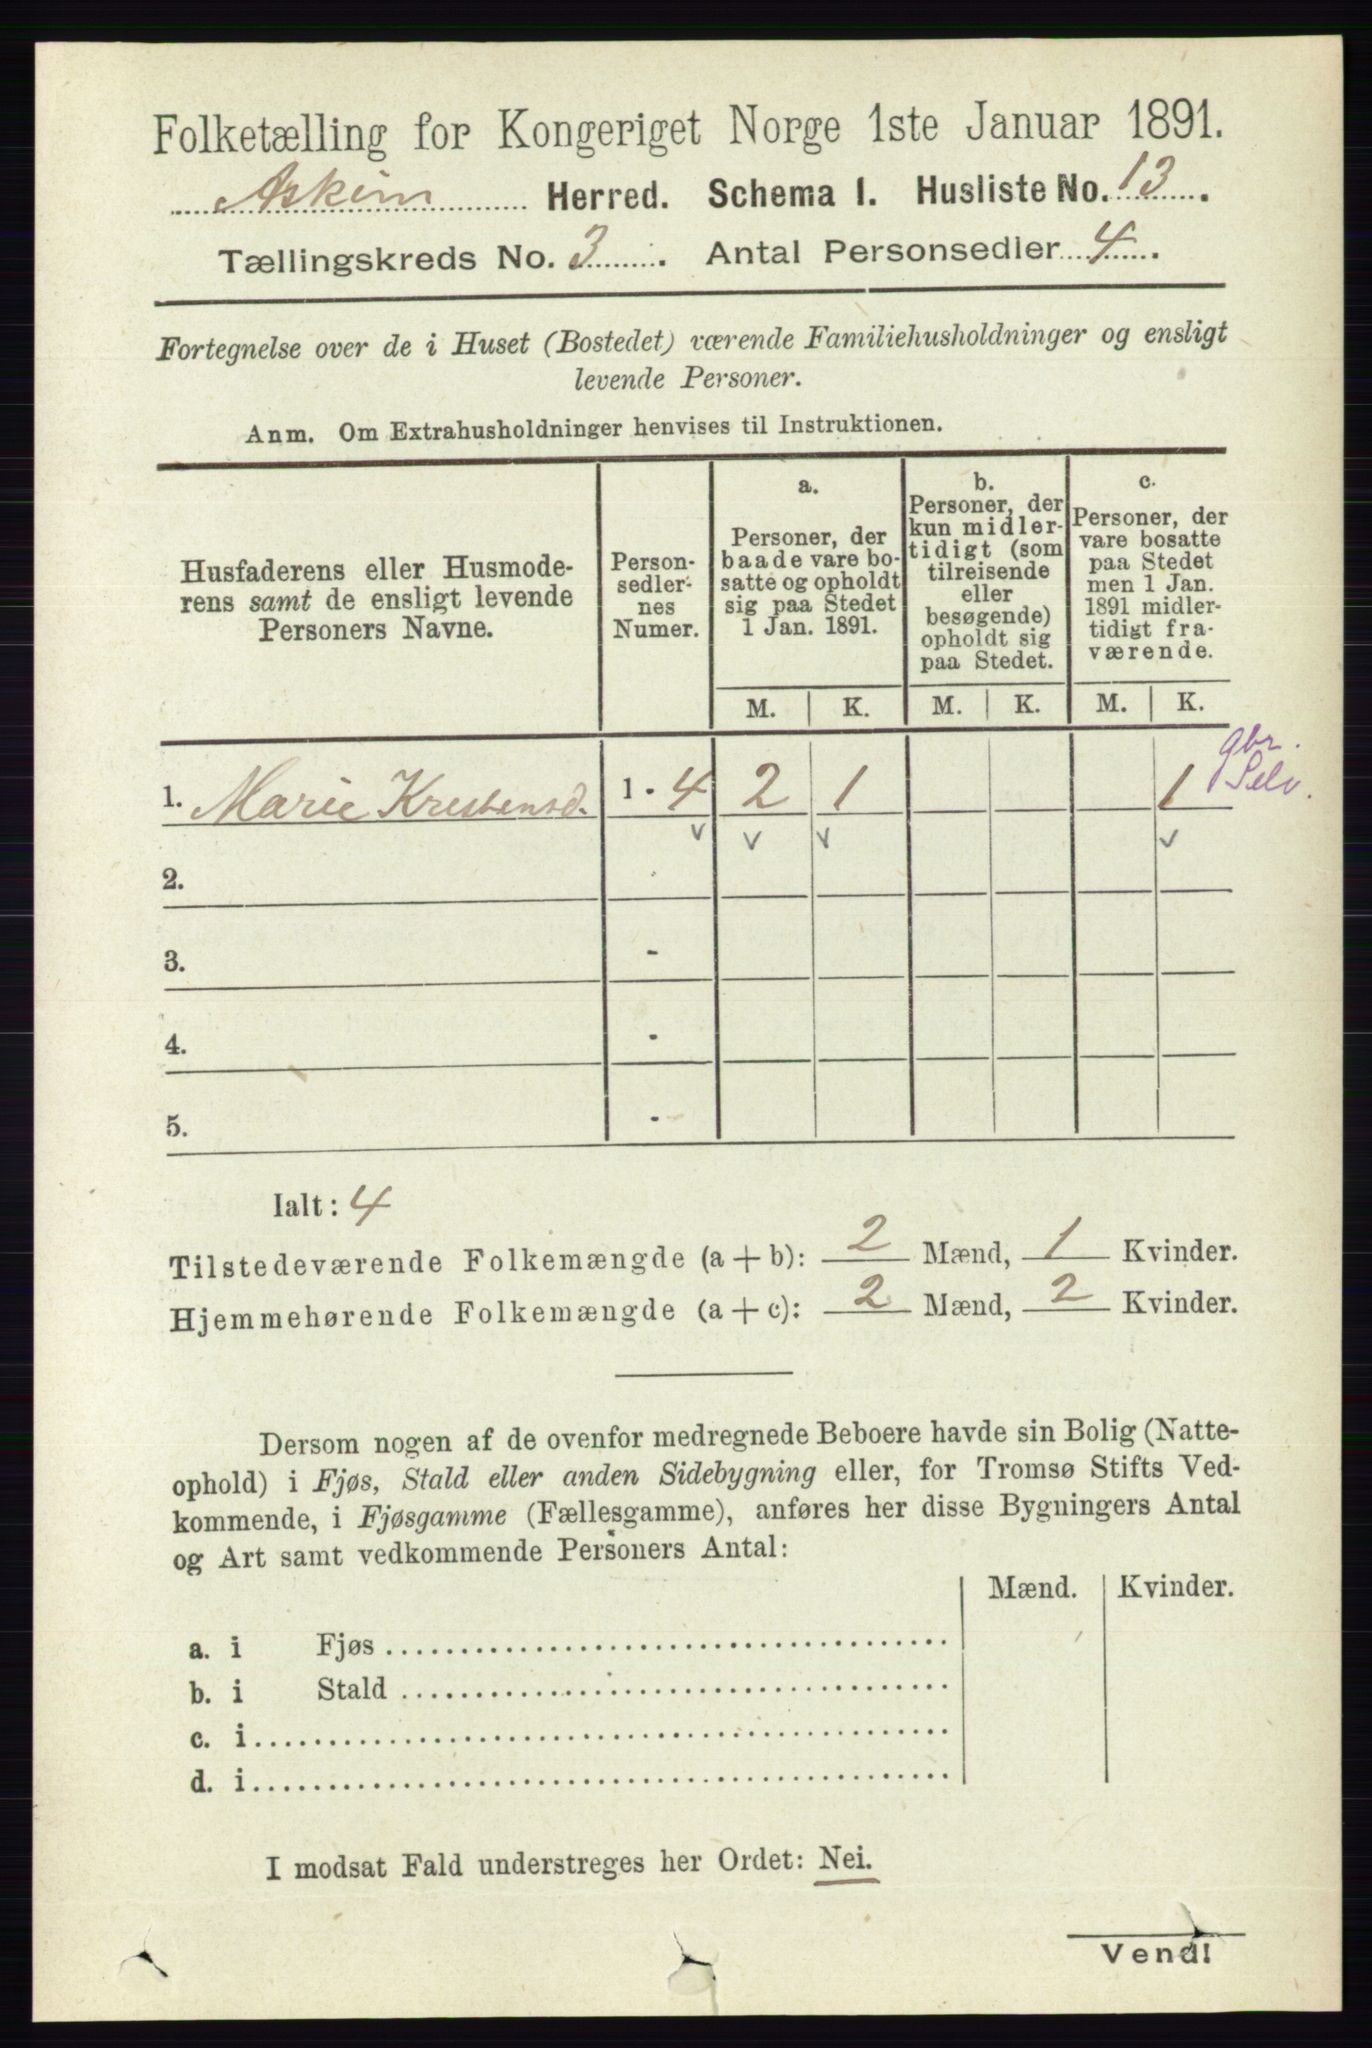 Folketælling for Kongeriget Norge 1ste Januar 1891.
Askim Herred. Schema 1. Husliste No. 13.
Tællingskreds No. 3. Antal Personsedler 4.
Fortegnelse over de i Huset (Bostedet) værende Familiehusholdninger og ensligt
levende Personer.
Anm. Om Extrahusholdninger henvises til Instruktionen.
Husfaderens eller Husmode-
rens samt de ensligt levende
Personers Navne.
Person-
sedler-
nes
Numer.
a.
Personer, der
baade vare bo-
satte og opholdt
sig paa Stedet
1 Jan. 1891.
b.
Personer, der
kun midler-
tidigt (som
tilreisende
eller
besøgende)
opholdt sig
paa Stedet.
c.
Personer, der
vare bosatte
paa Stedet
men 1 Jan.
1891 midler-
tidigt fra-
værende.
M. K. M. K. M. K.
gbr.
Selv.
1. Marie Kristensd. 1 - 4 2 1 1
2.
3. -
4. -
5. -
Ialt: 4
Tilstedeværende Folkemængde (a + b): 2 Mænd, 1 Kvinder.
Hjemmehørende Folkemængde (a + c): 2 Mænd, 2 Kvinder.
Dersom nogen af de ovenfor medregnede Beboere havde sin Bolig (Natte-
ophold) i Fjøs, Stald eller anden Sidebygning eller, for Tromsø Stifts Ved-
kommende, i Fjøsgamme (Fællesgamme), anføres her disse Bygningers Antal
og Art samt vedkommende Personers Antal:
Mænd. Kvinder.
a. i Fjøs
b. i Stald
c. i
d. i
I modsat Fald understreges her Ordet: Nei.
Vend!